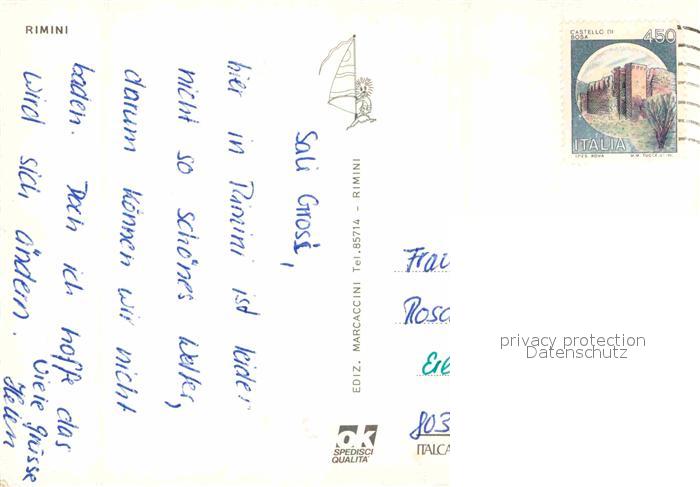 RIMINI
Sali Grosi,
hier in Rimini ist leider
nicht so schönes Wetter,
darum können wir nicht
baden. Doch ich hoffe das
wird sich ändern.
Viele Grüsse
Helen
EDIZ. MARCACCINI Tel. 85714 - RIMINI
CASTELLO DI
BOSA
450
ITALIA
I.P.Z.S. ROMA
Frau
Rosa
803
ok
SPEDISCI
QUALITA'
ITALCA
privacy protection
Datenschutz